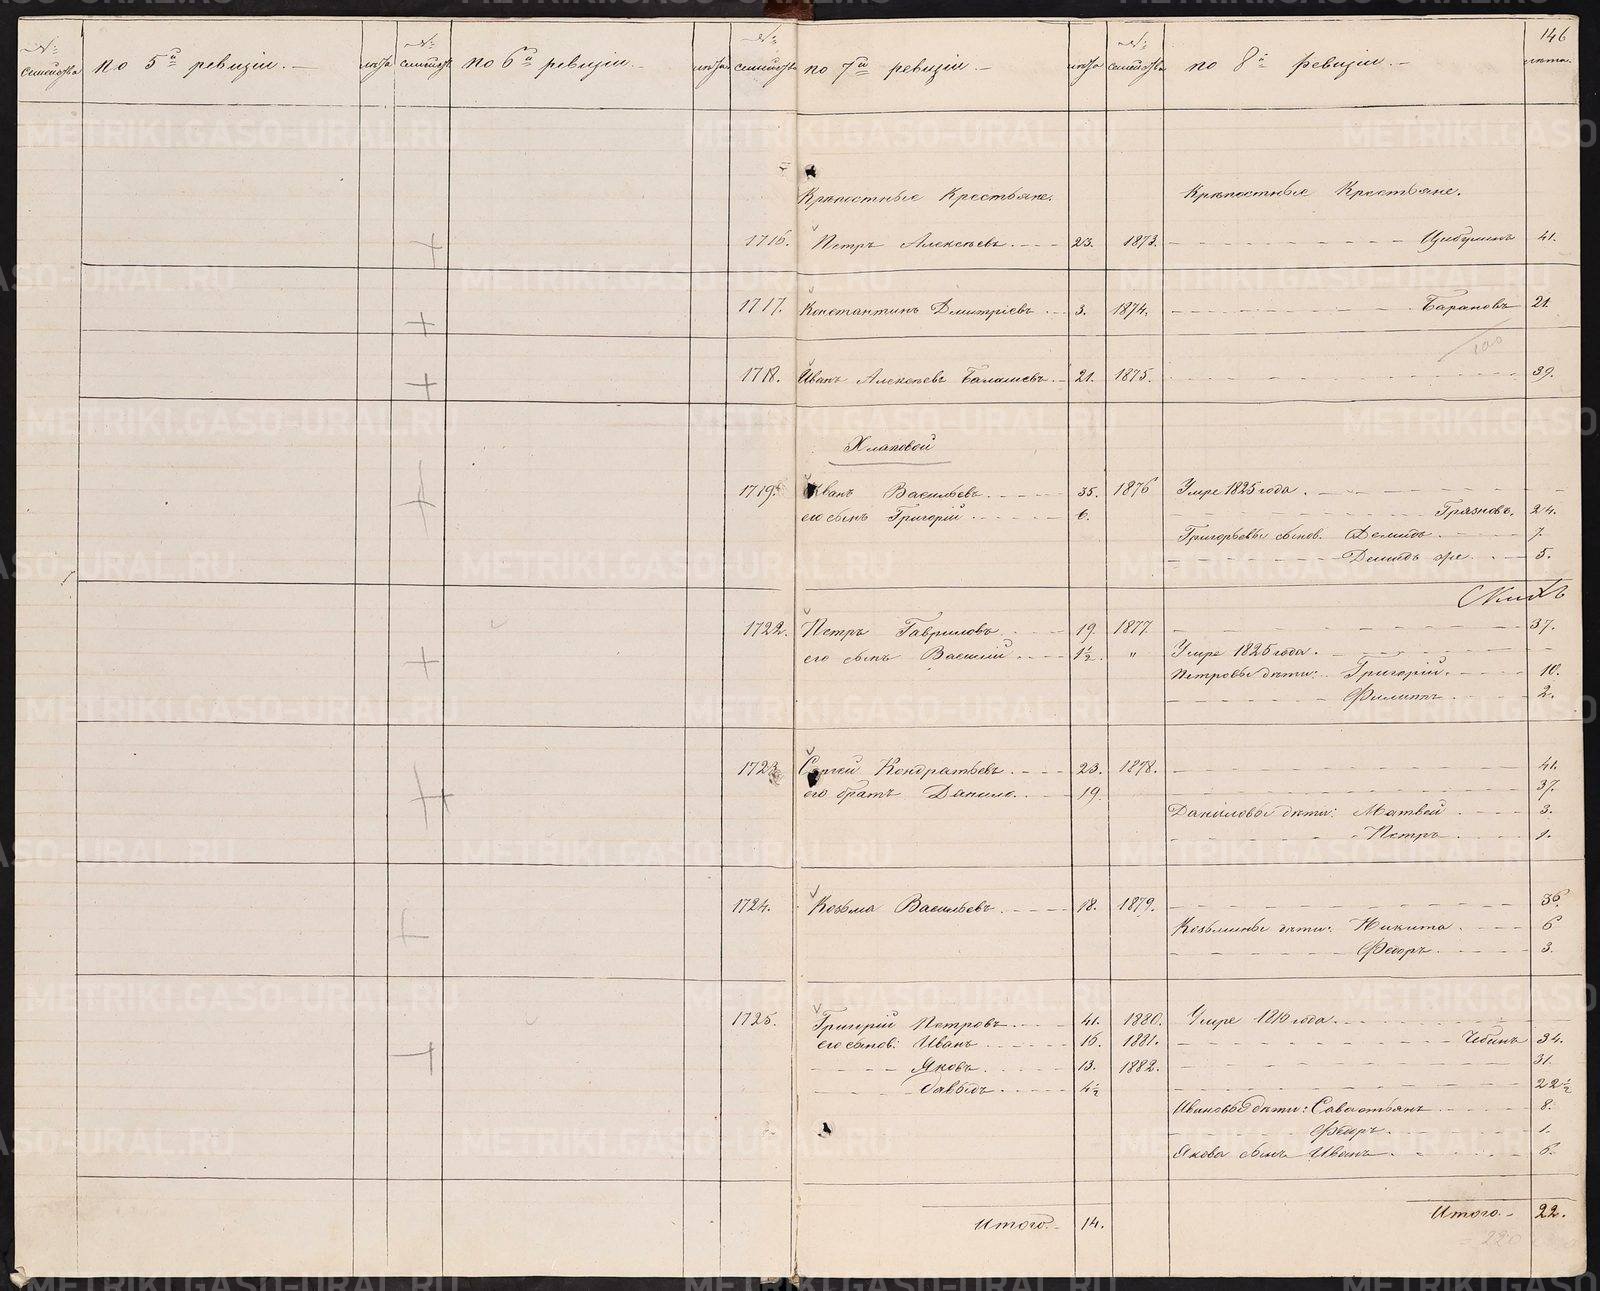 146
№ семейства по 5й ревизіи. лѣта № семейств. по 6й ревизіи. лѣта № семейства по 7й ревизіи. лѣта № семейства по 8й ревизіи. лѣта.
Крѣпостные Крестьяне. Крѣпостные Крестьяне.
1716. Петръ Алексѣевъ. 23. 1873. 41.
1717. Константинъ Дмитріевъ 3. 1874. Барановъ 21.
1718. Иванъ Алексѣевъ 21. 1875. 39.
Хлаповой
1719. Иванъ Васильевъ. 35. 1876 Умре 1825 года.
его сынъ Григорій 6. Грязновъ. 24.
Григорьевы сынов. Демидъ. 7.
Демидъ же. 5.
1722. Петръ Гавриловъ 19. 1877. 37.
его сынъ Василій 1½. " Умре 1825 года.
Петровы дѣти: Григорій. 10.
Филиппъ 2.
1723. Сергей Кондратьевъ 23. 1878. 41.
его братъ Данило. 19. 37.
Даниловы дѣти: Матвей 3.
Петръ 1.
1724. Козьма Васильевъ 18. 1879. 36.
Козьмины дѣти: Никита 6
Федоръ 3.
1725. Григорій Петровъ 41. 1880. Умре 1816 года.
его сынов: Иванъ 16. 1881. 34.
Яковъ 13. 1882. 31.
Давыдъ 4½ 22½
Ивановы дѣти: Савастьянъ 8.
Федоръ. 1.
Якова сынъ Иванъ 6.
Итого. 14. Итого. 22.
METRIKI.GASO-URAL.RU